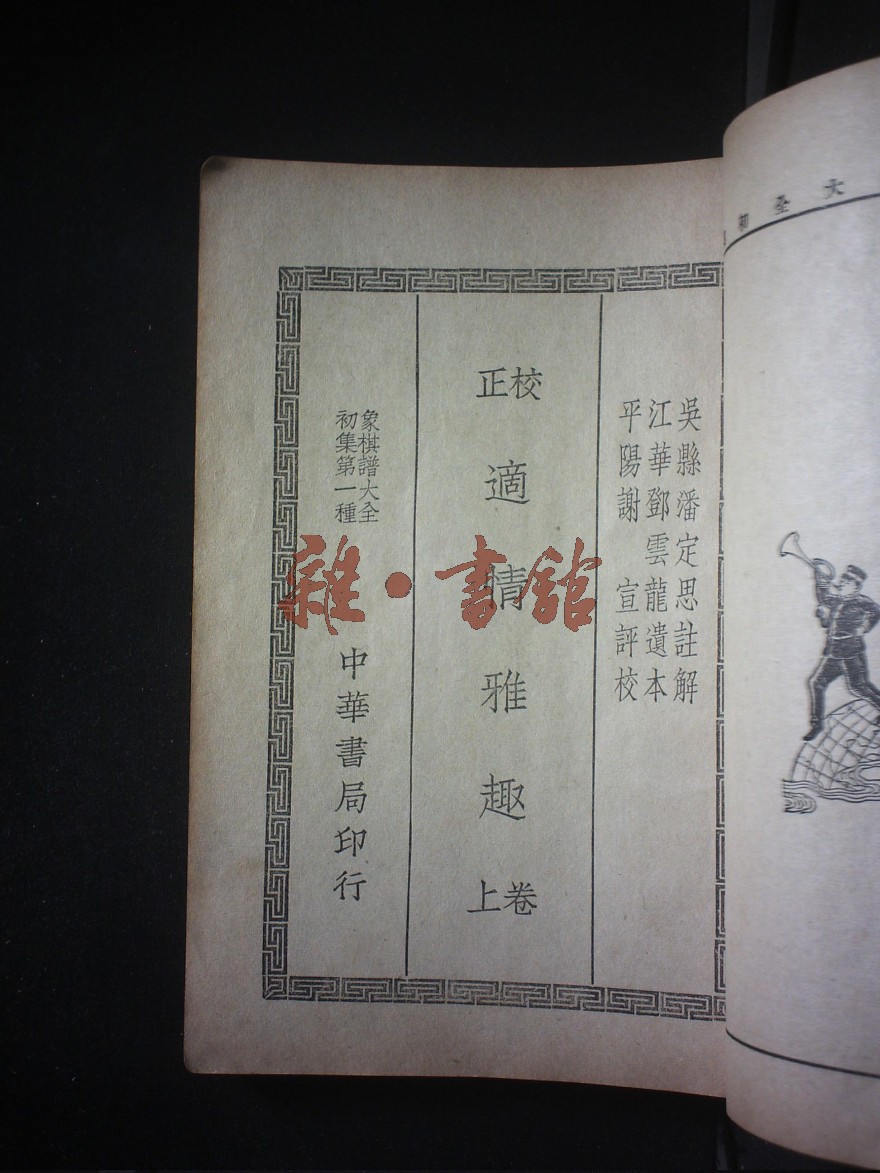 吳縣潘定思註解
江華鄧雲龍遺本
平陽謝宣評校
校正
適情雅趣
卷上
象棋譜大全
初集第一種
中華書局印行
雜·書館
大全初